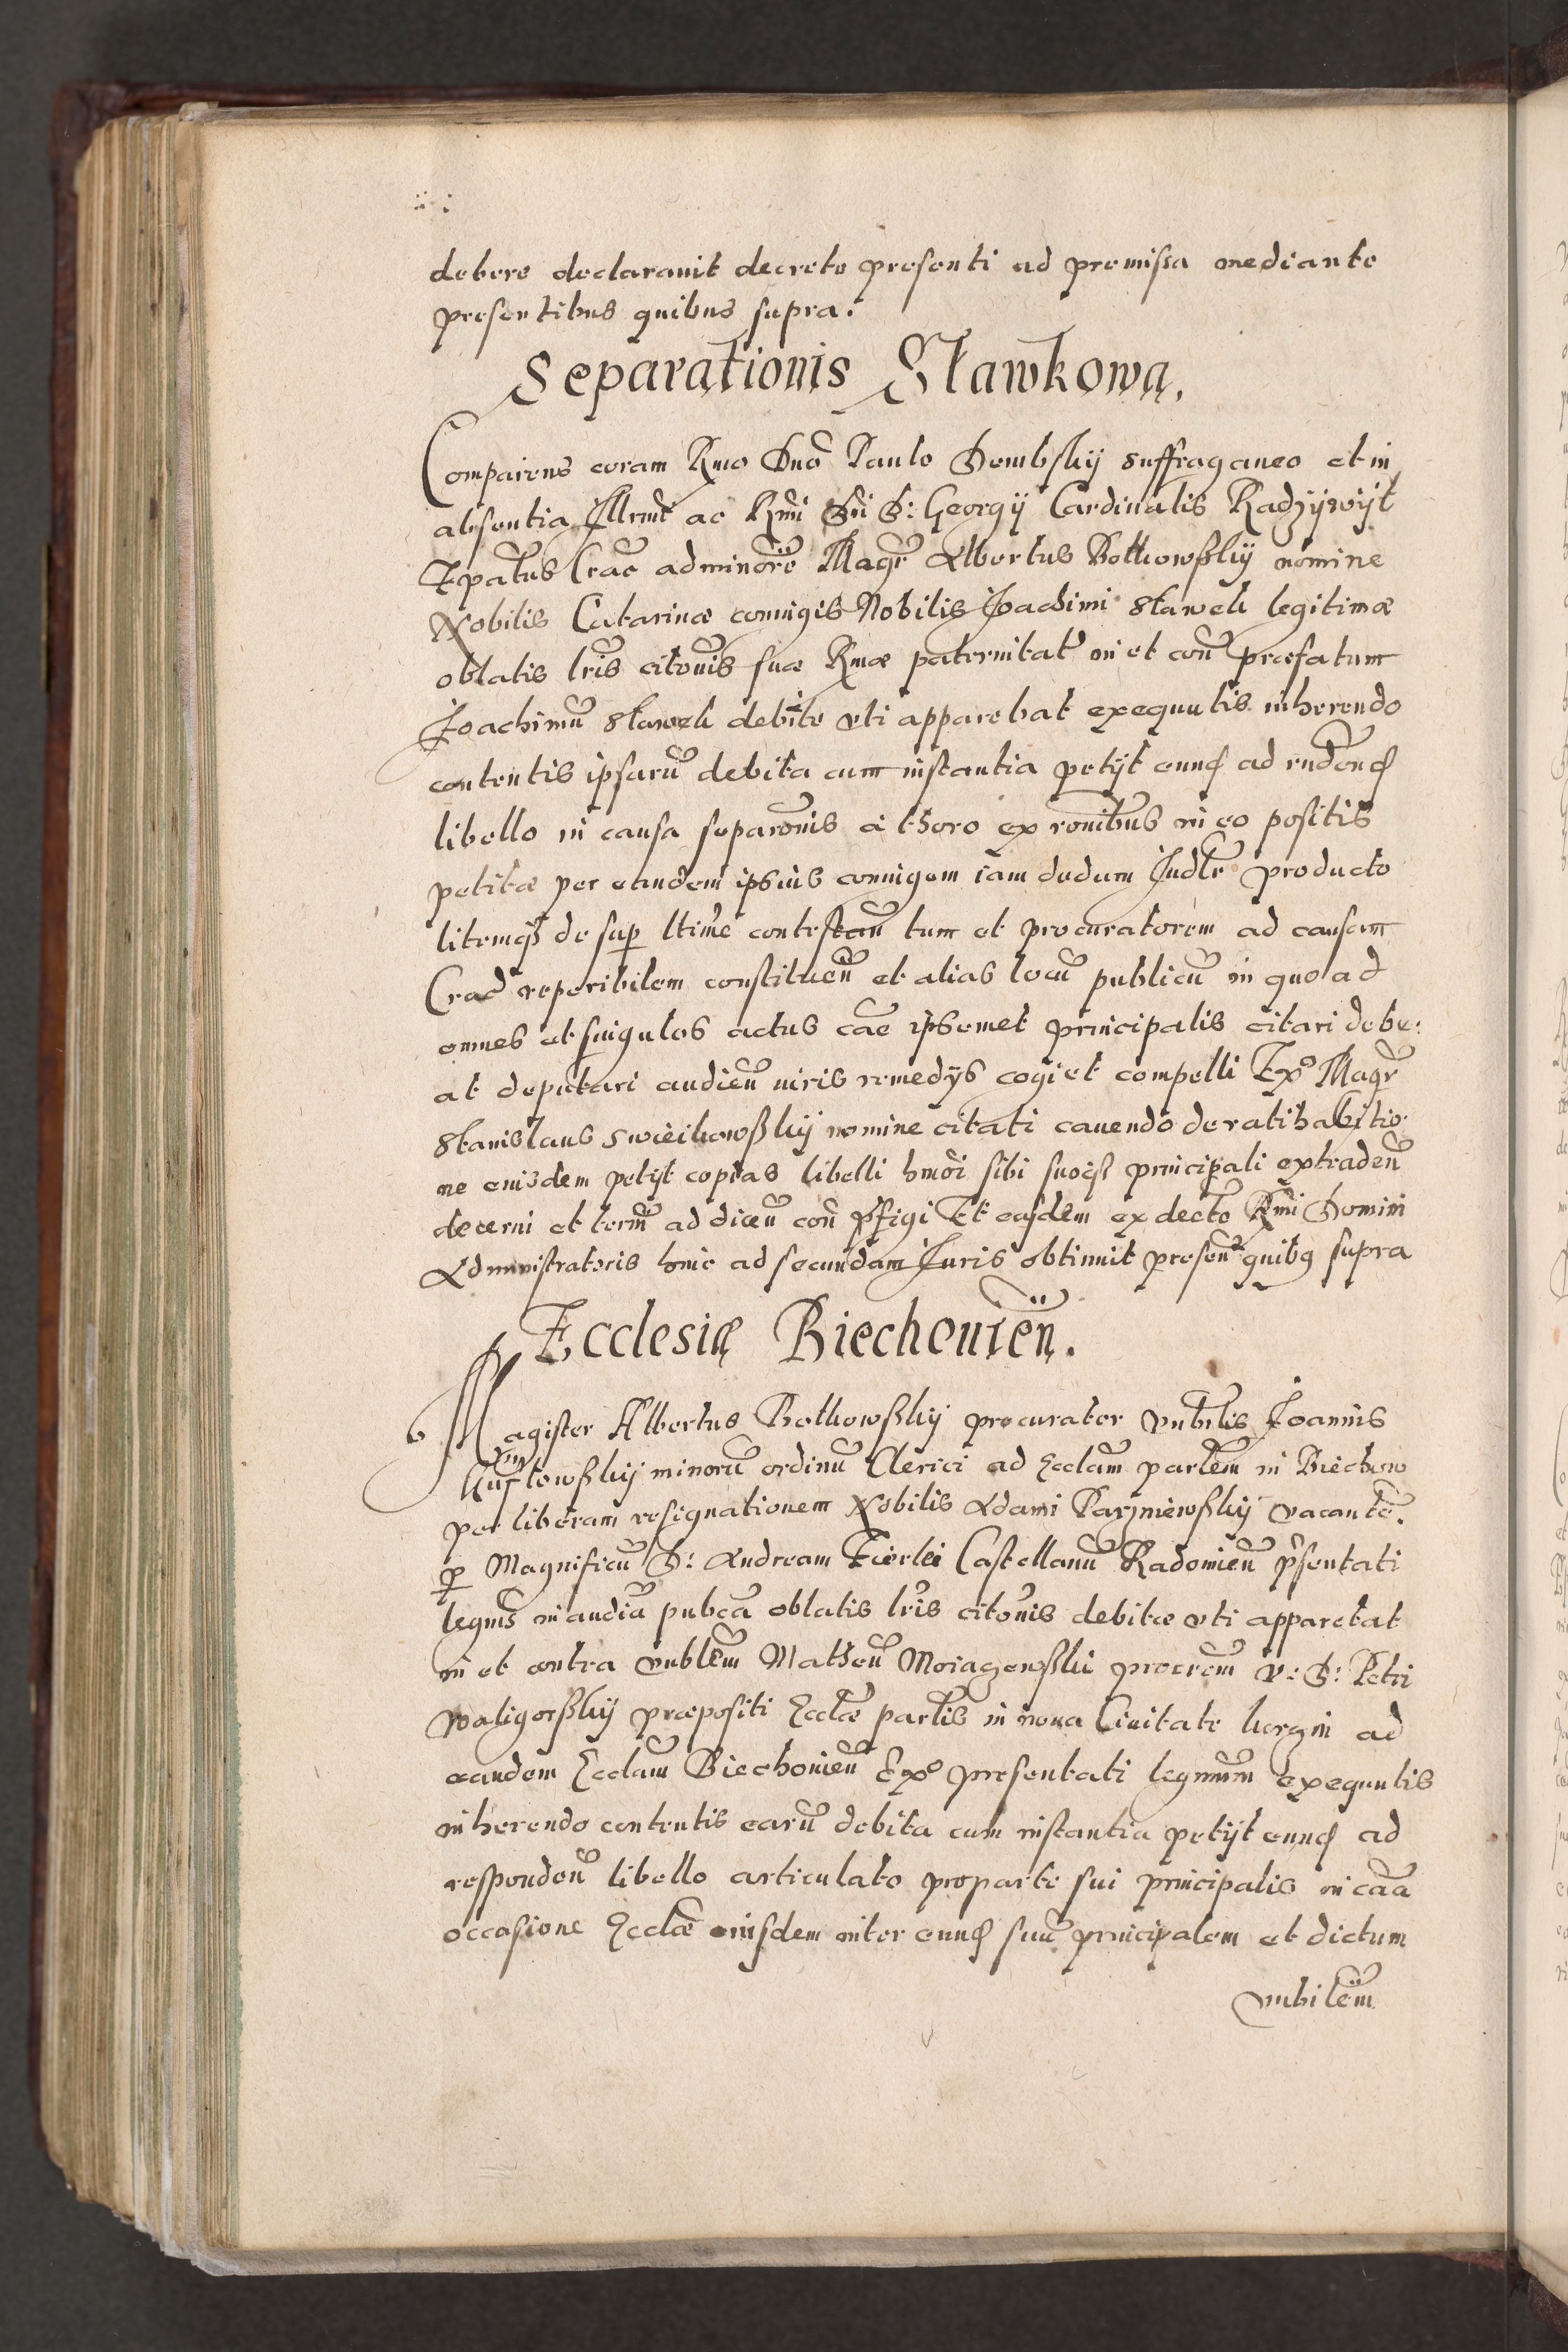 debere declarauit decreto presenti ad premissa mediante
presentibus quibus supra.
Separationis Stawkowa.
Comparens coram Rmo Dno Paulo Dembskij suffraganeo et in
absentia Illrmi ac Rmi Dni D: Georgij Cardinalis Radzijwijl
Epatus Crac adminore Magr Albertus Bothowßkij nomine
Nobilis Catarinæ coniugis Nobilis Joachimi Stawek legitimæ
oblatis lris citonis suæ Rmæ paternitat in et con præfatum
Joachimū Stawek debite vti apparebat exequutis inherendo
contentis ipsarū debita cum instantia petijt eund ad rndend
libello in causa separonis a thoro ex ronibus in eo positis
petitæ per eandem ipsius coniugem iam dudum Judlr producto
litemqȝ desup ltime contestan tum et procuratorem ad causam
Crac reperibilem constituen et alias locū publicū in quo ad
omnes et singulos actus cāe ipsemet principalis citari debe:
at deputari audien iuris remedijs cogi et compelli Exº Magr
Stanislaus Swiecihowßkij nomine citati cauendo de ratihabitio:
ne eiusdem petijt copias libelli hmoi sibi suoqȝ principali extraden
decerni et termū ad dicen con pfigi Et easdem ex decto Rmi Domini
Administratoris hinc ad secundam Juris obtinuit presen quibq supra
Ecclesiæ Biechouien.
Magister Albertus Bothowßkij procurator vnbilis Joannis
minorū ordinū Clerici ad Ecclam parlem in Biechow
per liberam resignationem Nobilis Adami Parzniewßkij vacante.
p Magnificū D: Andream Fierlei Castellanū Radomien psentati
legmi in audia pubca oblatis lris citonis debitæ vti apparebat
in et contra vnblem Matheū procrem v: D: Petri
Waligorßkij præpositi Ecclæ parlis in noua Ciuitate korzin ad
eandem Ecclam Biechouien Exº presentati legmum exequutis
inherendo contentis earū debita cum instantia petijt eund ad
responden libello articulato pro parte sui principalis in caa
occasione Ecclæ eiusdem inter eund suū principalem et dictum
vnbilem